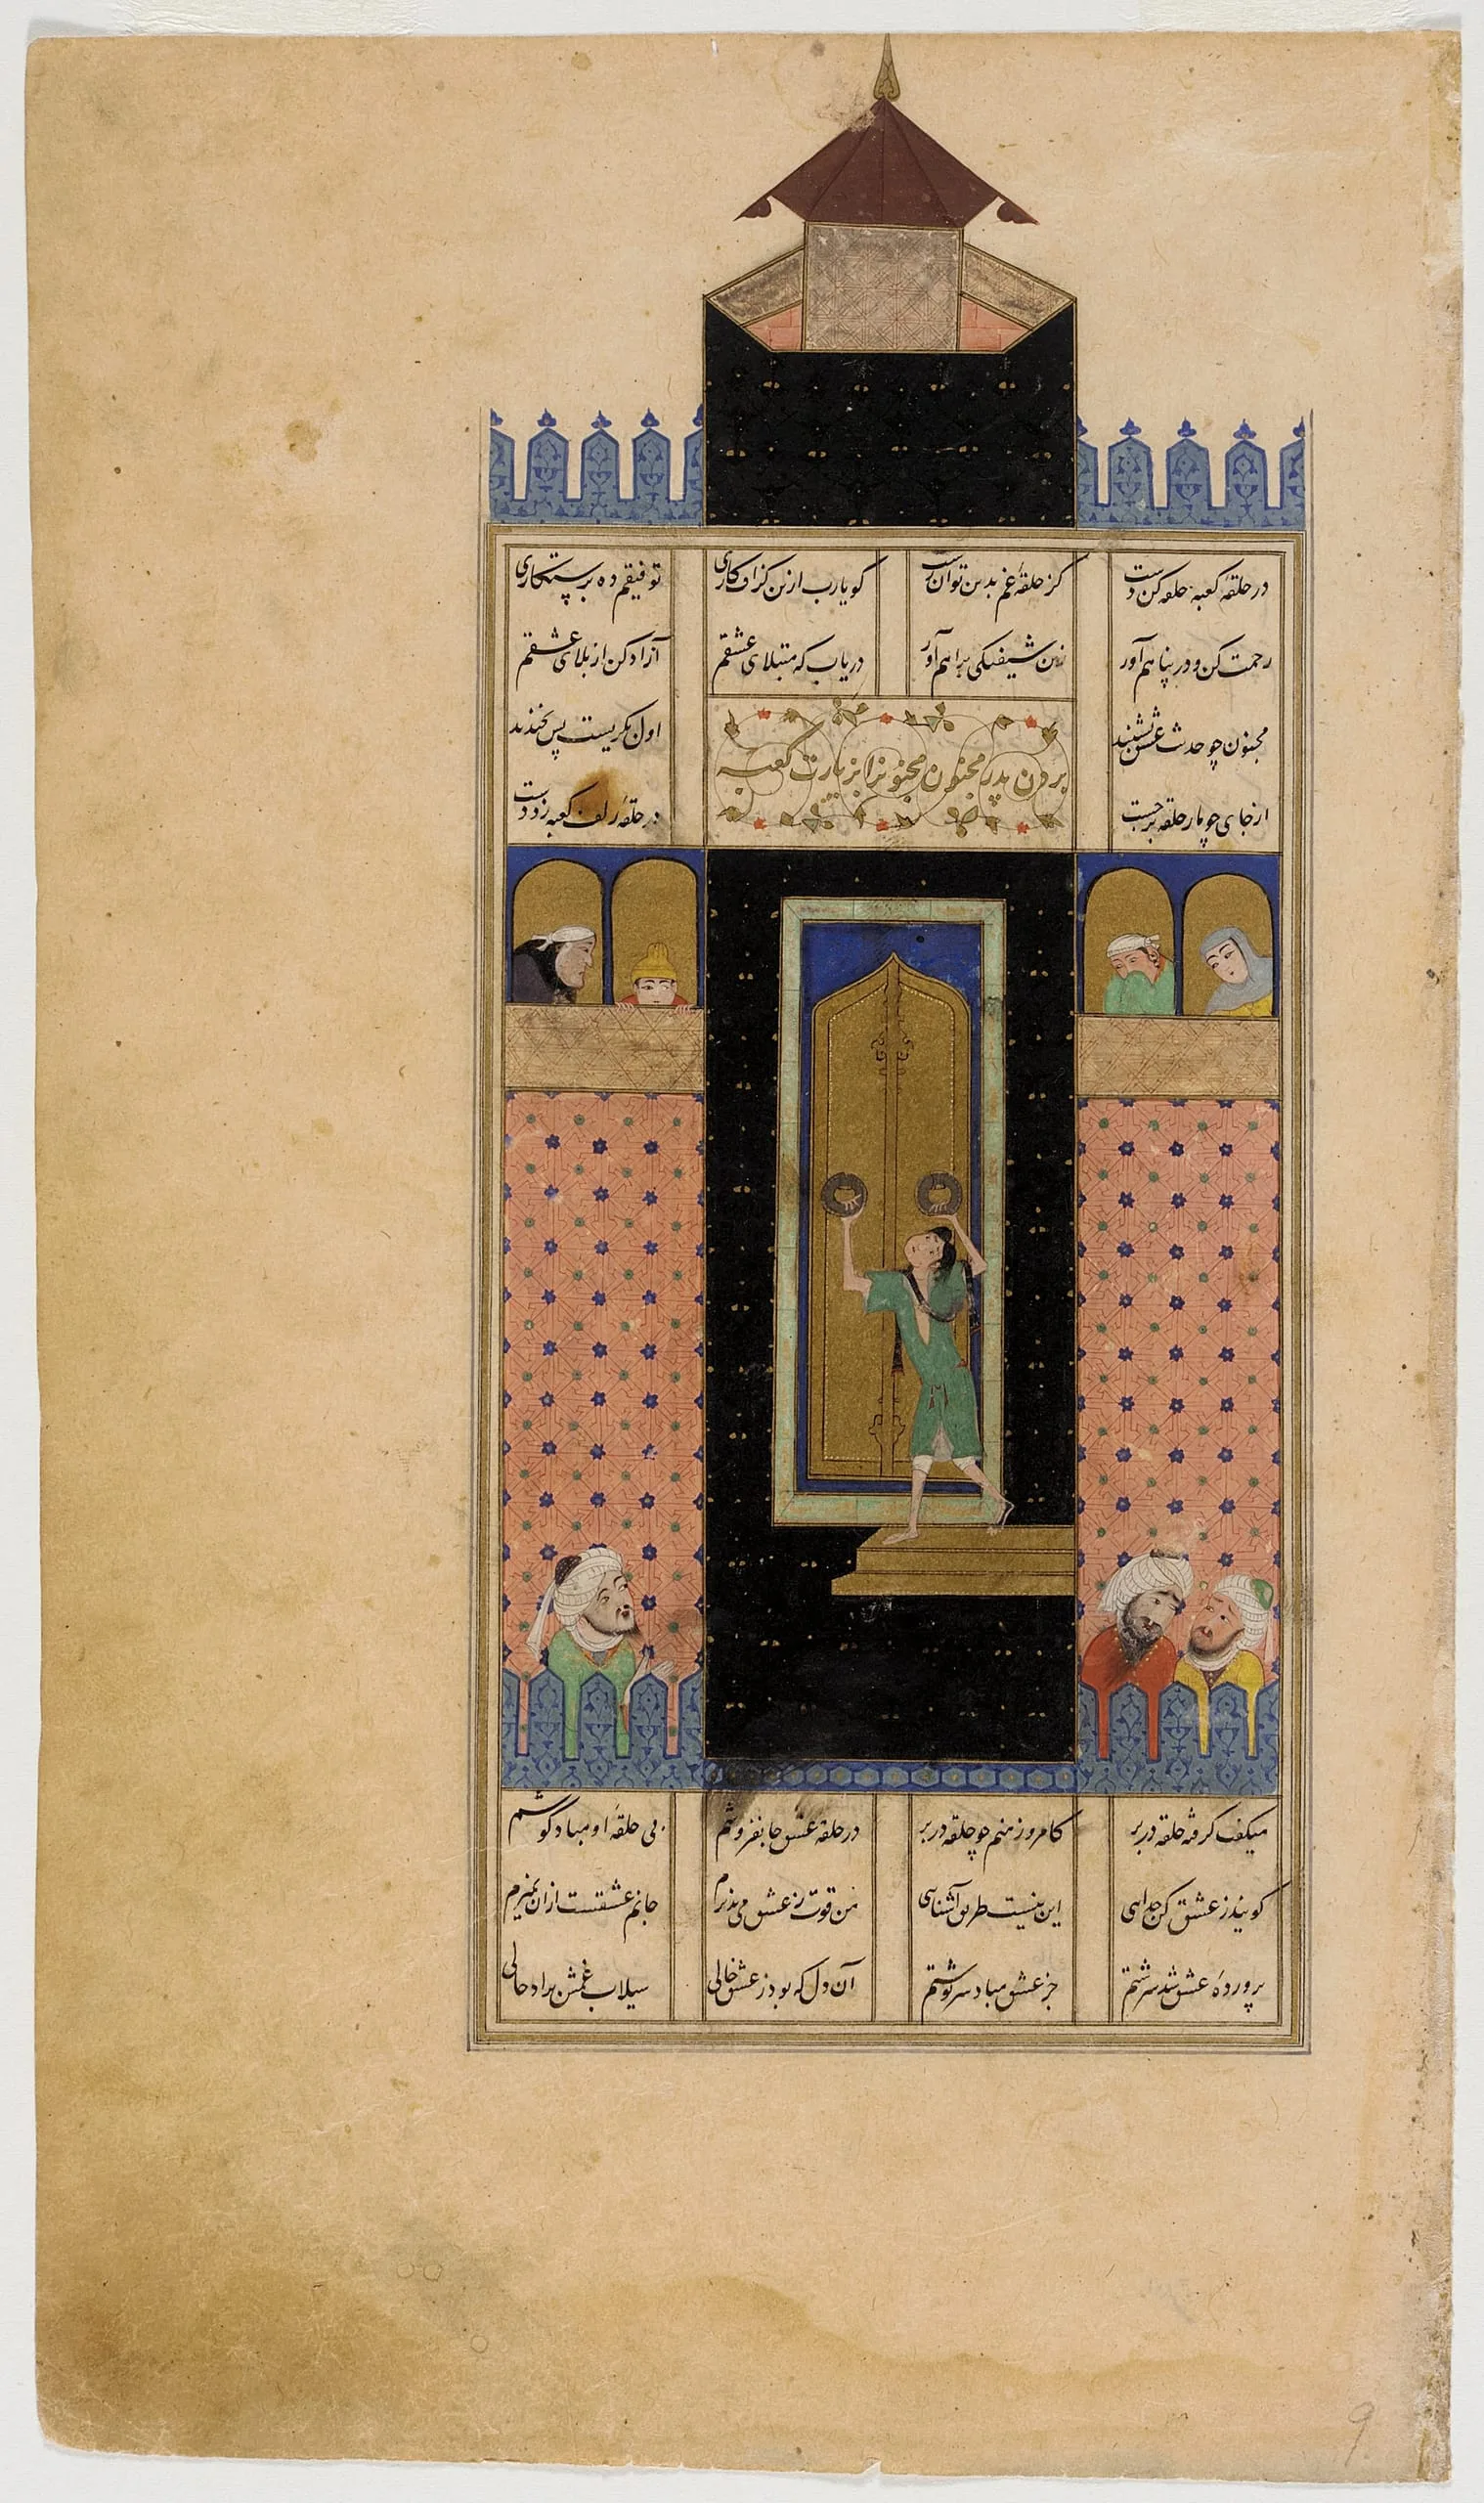 در حلقهٔ کعبه حلقه کن دست کز حلقهٔ غم بدین توان رست گو یارب ازین گزاف کاری توفیقم ده برستگاری
رحمت کن و در پناهم آور زین شیفتگی براهم آور دریاب که مبتلای عشقم آزاد کن از بلای عشقم
مجنون چو حدیث عشق بشنید اول بگریست پس بخندید
از جای چو مار حلقه برجست در حلقهٔ زلف کعبه زد دست
بردن پدر مجنون مجنونرا بزیارت کعبه
میگفت گرفته حلقه در بر کامروز منم چو حلقه در بر در حلقهٔ عشق جانفروشم بی حلقهٔ او مباد گوشم
گویند ز عشق کن جدایی این نیست طریق آشنایی من قوت ز عشق می پذیرم جانم عشقست ازان نمیرم
پروردهٔ عشق شد سرشتم جز عشق مباد سرنوشتم آن دل که بود ز عشق خالی سیلاب غمش براد حالی
9